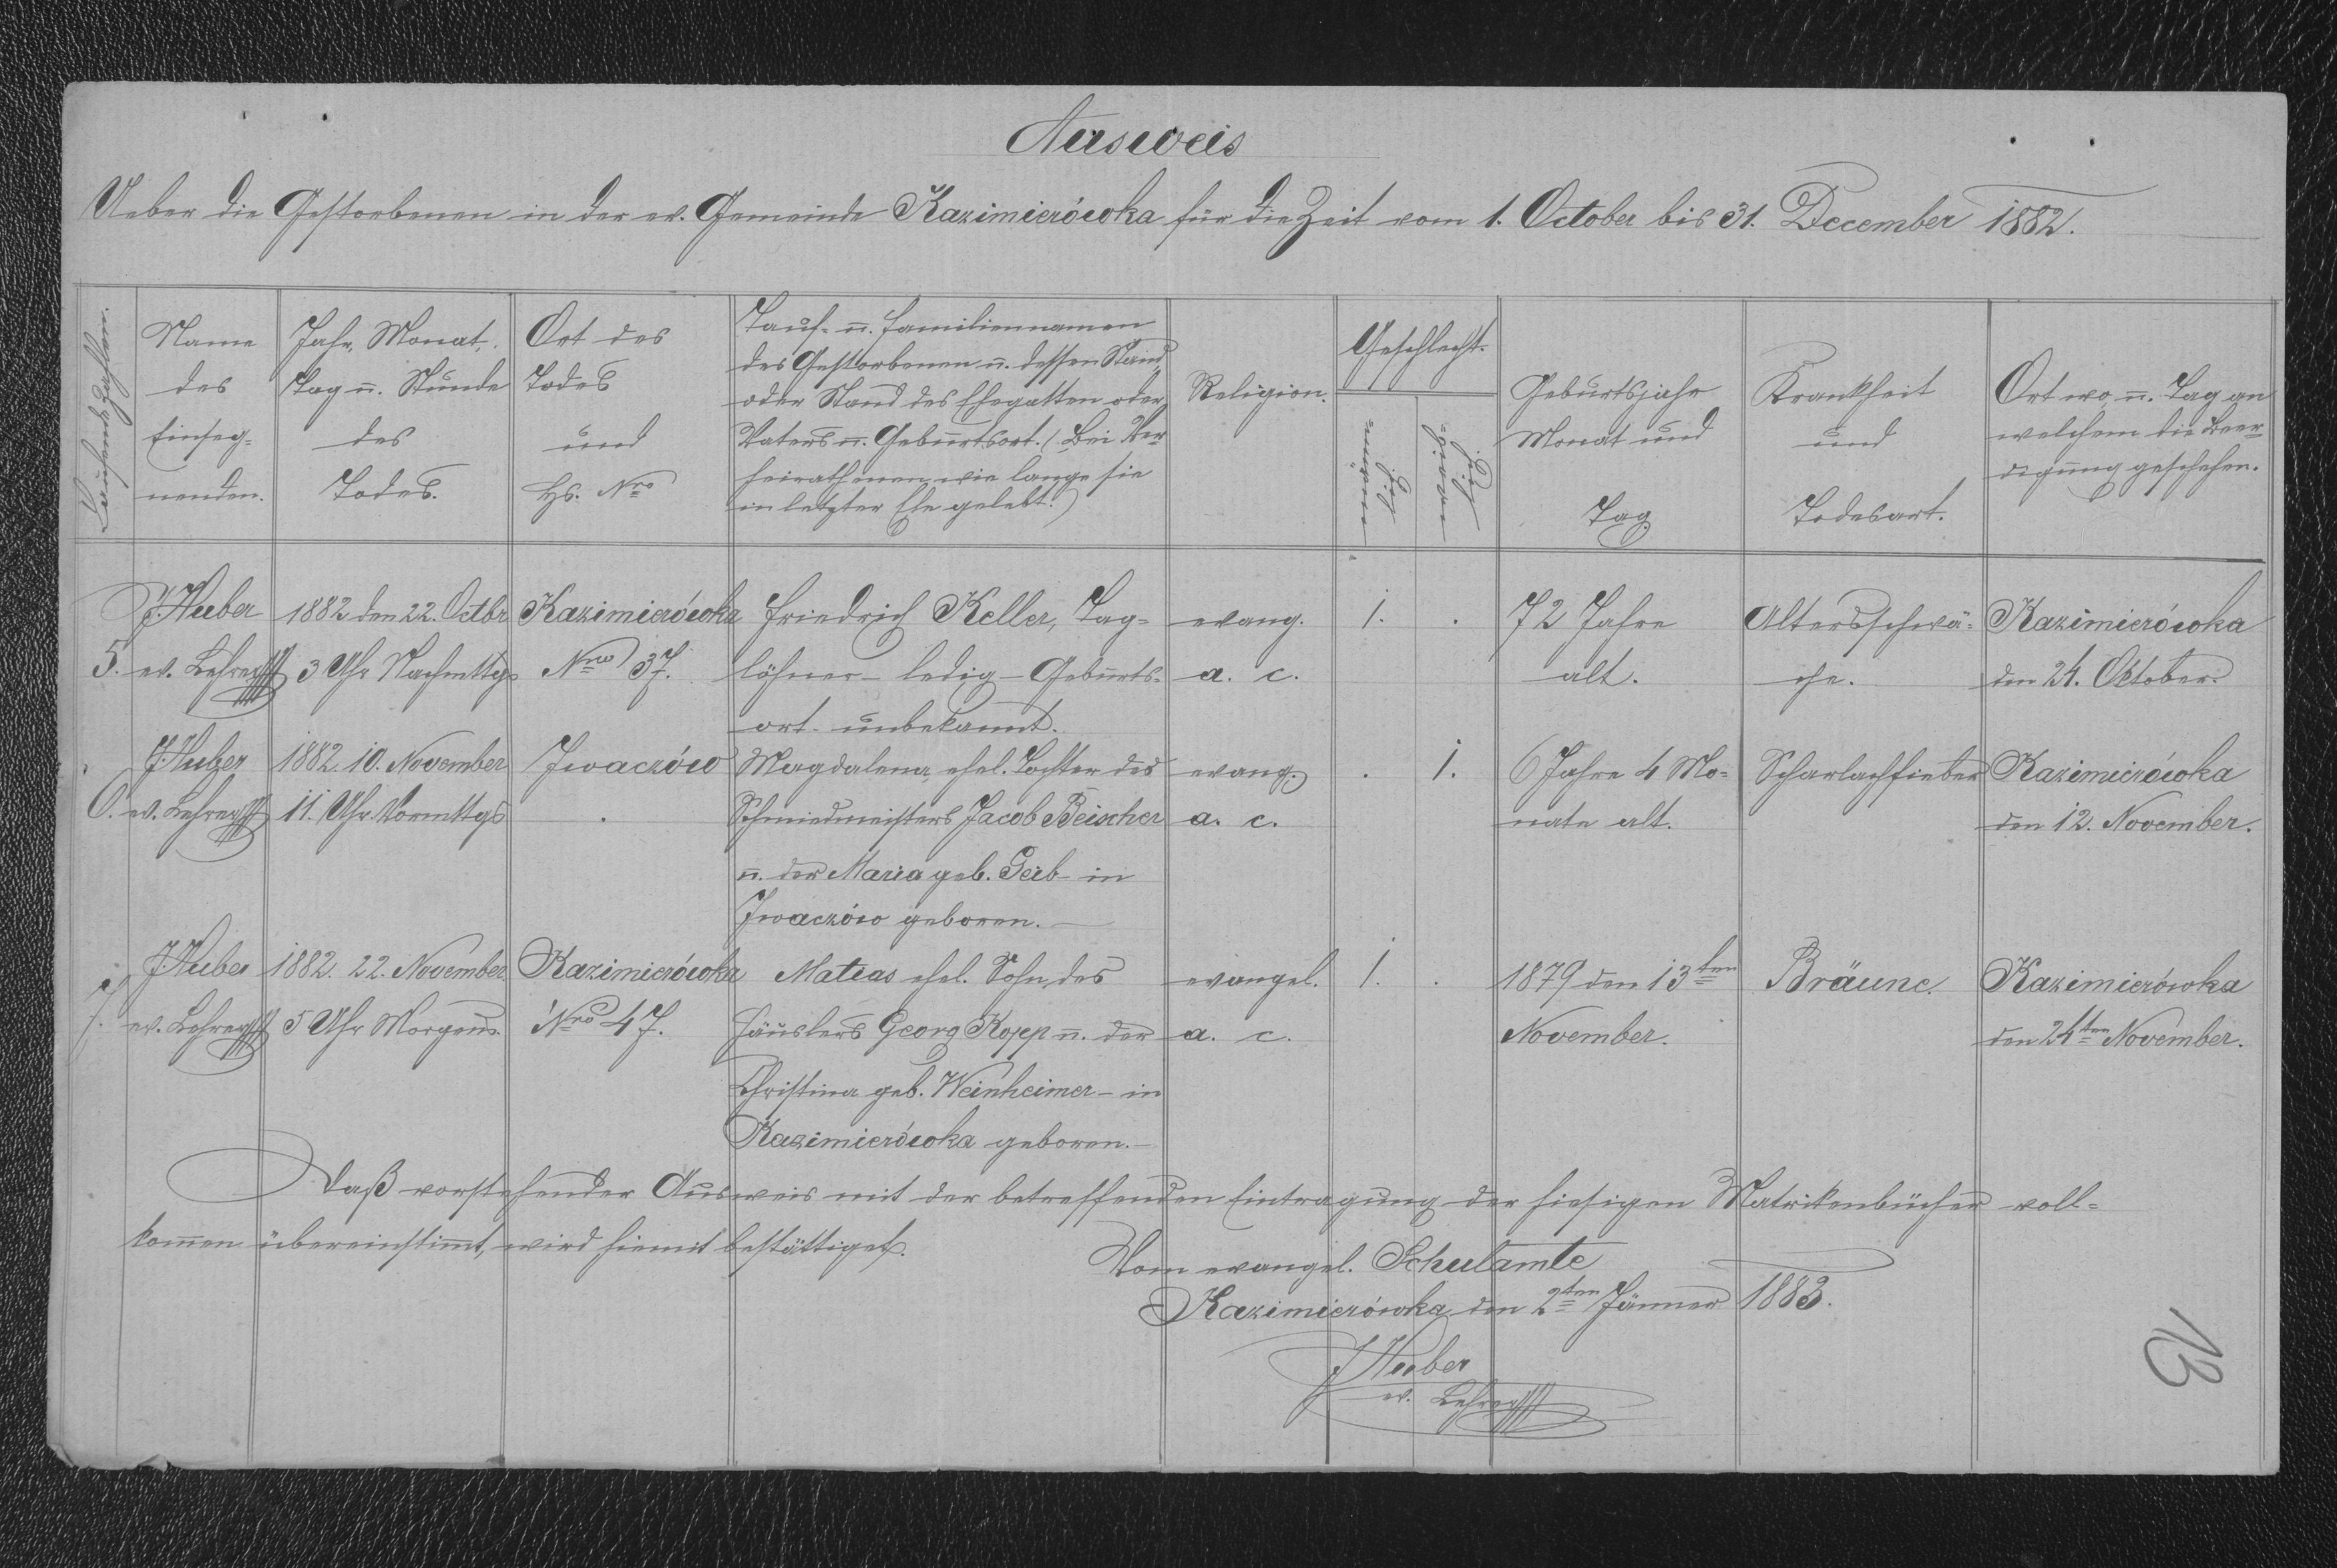 Ausweis
Ueber die Gestorbenen in der ev. Gemeinde Kazimierówka für die Zeit vom 1. October bis 31. December 1882.
Laufende Zahlen.
Name
des
Einseg-
nenden.
Jahr, Monat,
Tag u. Stunde
des
Todes.
Ort des
Todes
und
Hs. Nro
Tauf- u. Familiennamen
des Gestorbenen u. dessen Stand,
oder Stand des Ehegatten oder
Vaters u. Geburtsort. (Bei Ver-
heirathenen wie lange sie
in letzter Ehe gelebt.)
Religion.
Geschlecht.
männ-
lich
weib-
lich
Geburtsjahr
Monat und
Tag
Krankheit
und
Todesart.
Ort wo, u. Tag an
welchem die Beer-
digung geschehen.
J. Huber 1882 den 22. Octbr Kazimierówka Friedrich Keller, Tag- evang. 1. . 72 Jahre Altersschwä- Kazimierówka
5. ev. Lehrer 3 Uhr Nachmttgs Nro 37. löhner - ledig - Geburts- a. c. alt. che. den 24. October.
ort unbekannt.
J. Huber 1882. 10. November Iwaczów Magdalena ehel. Tochter des evang. . 1. 6 Jahre 4 Mo- Scharlachfieber Kazimierówka
6. ev. Lehrer 11. Uhr Vormttgs . Schmiedmeisters Jacob Beischer a. c. nate alt. den 12. November.
u. der Maria geb. Geib - in
Iwaczów geboren.
J. Huber 1882. 22. November. Kazimierówka Matias ehel. Sohn des evangel. 1. . 1879 den 13ten Bräune. Kazimierówka
7. ev. Lehrer 5 Uhr Morgens. Nro 47. Häuslers Georg Kopp u. der a. c. November. den 24ten November.
Christina geb. Weinheimer - in
Kazimierówka geboren.-
Daß vorstehender Ausweis mit der betreffenden Eintragung der hiesigen Matrikenbücher voll-
kommen übereinstimmt, wird hiemit bestättiget.
Vom evangel. Schulamte
Kazimierówka den 2ten Jänner 1883.
J Huber
ev. Lehrer